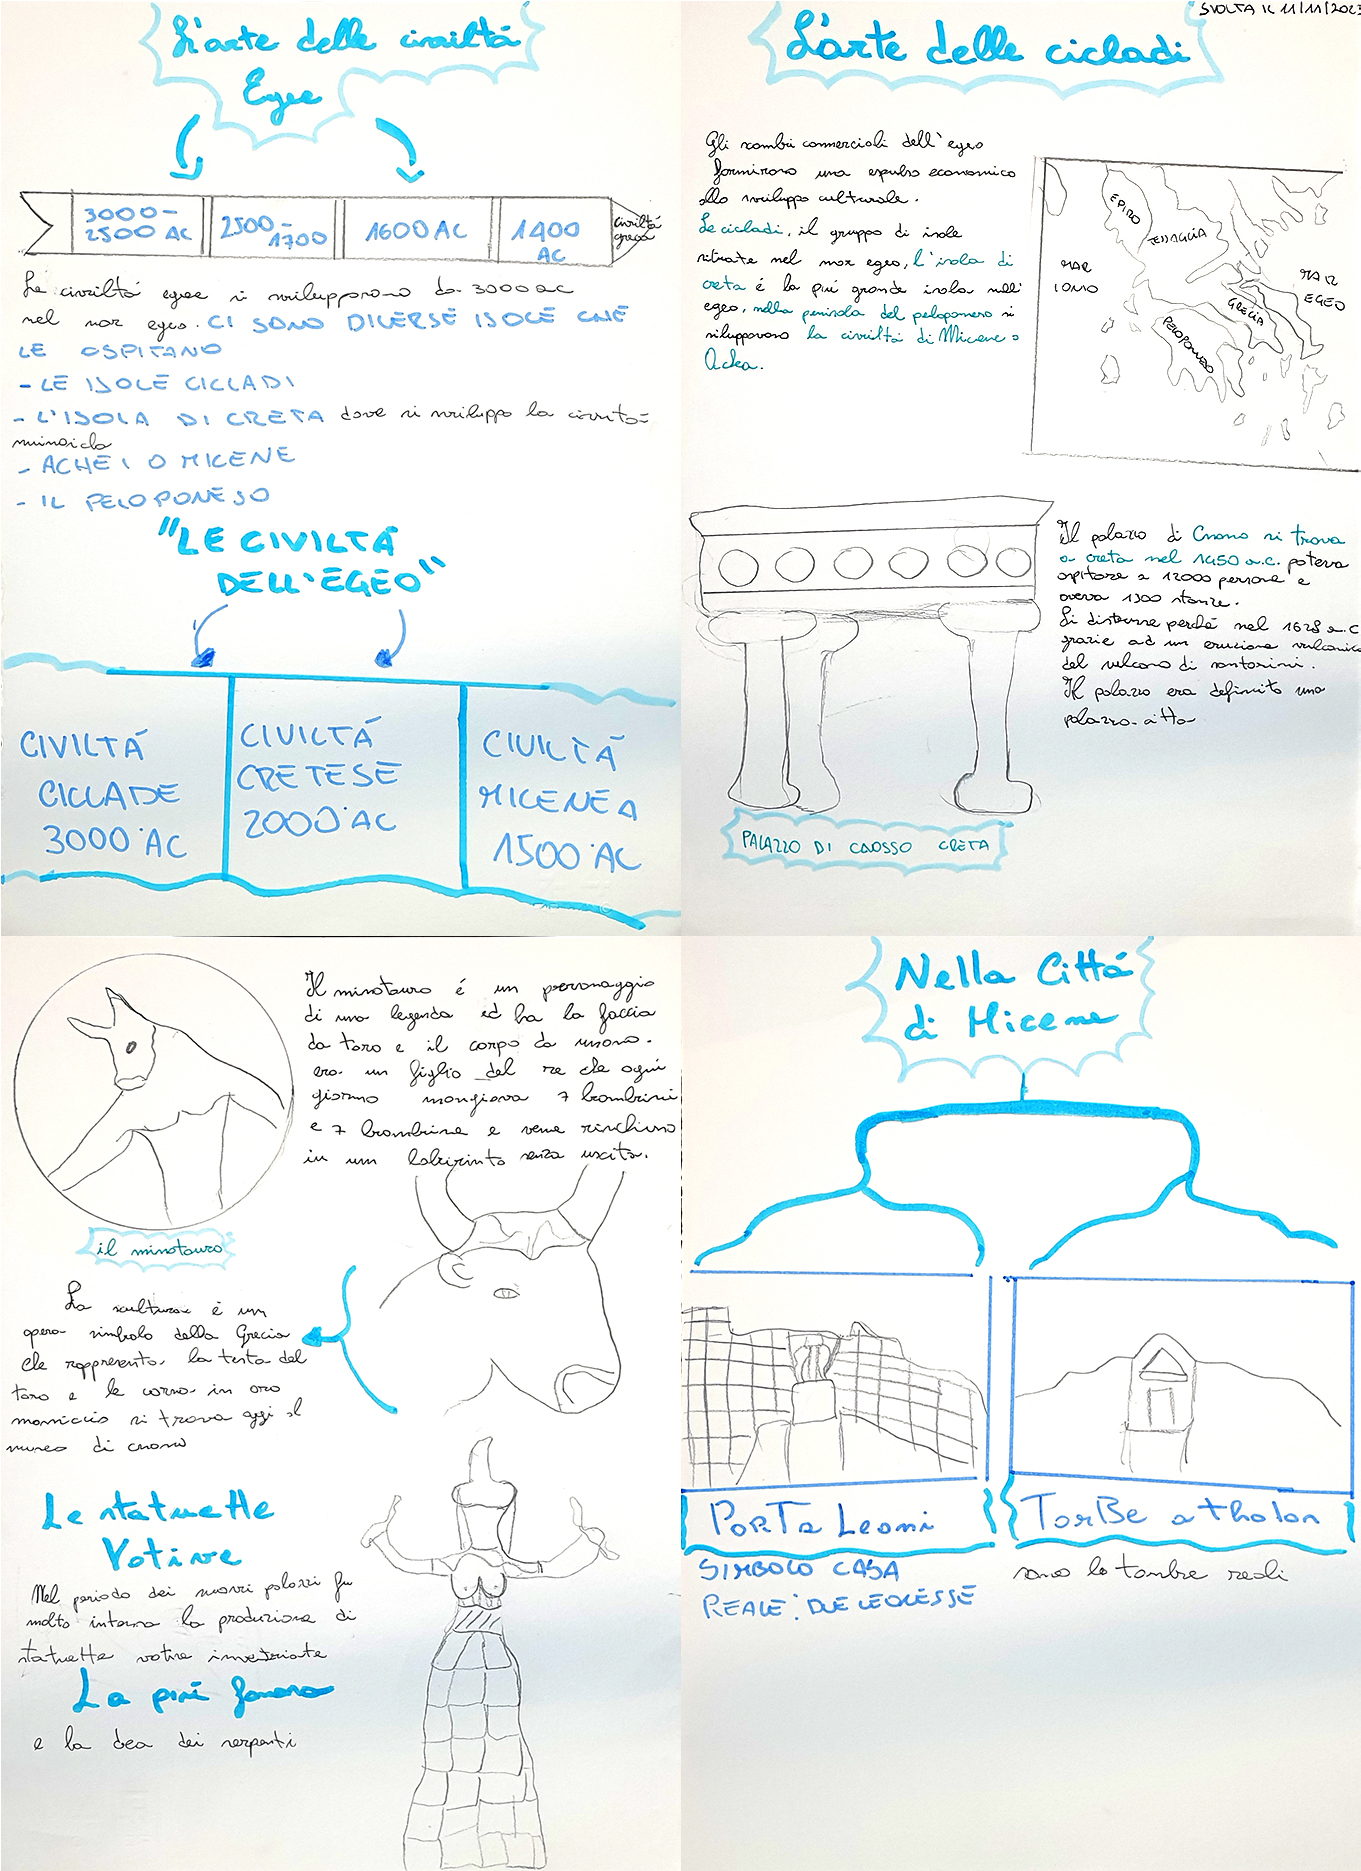 L'arte delle civiltá
Egee
3000-
2500 AC
2500-
1700
1600 AC
1400
AC
civiltá
greca
Le civiltá egee si svilupporono da 3000 ac
nel mar egeo. CI SONO DIVERSE ISOLE CHE
LE OSPITANO
- LE ISOLE CICLADI
- L'ISOLA DI CRETA dove si sviluppo la
- ACHEI O MICENE
- IL PELOPONESO
"LE CIVILTÁ
DELL'EGEO"
CIVILTÁ
CICLADE
3000 AC
CIVILTÁ
CRETESE
2000 AC
CIVILTÁ
MICENEA
1500 AC
SVOLTA IL 11/11/2023
L'arte delle cicladi
Gli scambi commerciali dell'egeo
fornirono una economico
allo sviluppo culturale.
Le cicladi, il gruppo di isole
situate nel mar egeo, l'isola di
creta é la piú grande isola nell'
egeo, nella penisola del peloponeso si
svilupporono la civiltá di Micene o
Achea.
EPIRO
TESSAGLIA
MAR
IONIO
MAR
EGEO
GRECIA
PELOPONNESO
Il palazzo di Cnosso si trova
a creta nel 1450 a.c. poteva
ospitare a 12000 persone e
aveva 1300 stanze.
Si distrusse perché nel 1628 a.c
grazie ad un eruzione vulcanica
del vulcano di santorini.
Il palazzo era definito una
palazzo-citta
PALAZZO DI CNOSSO CRETA
Il minotauro é un personaggio
di una legenda ed ha la faccia
da toro e il corpo da umano.
era un figlio del re che ogni
giorno mangiava 7 bambini
e 7 bambine e venne rinchiuso
in un labirinto senza uscita.
il minotauro
La scultura é un
opera simbolo della Grecia
che rappresenta la testa del
toro e le corna in oro
massiccio si trova oggi al
museo di cnosso
Le statuette
Votive
Nel periodo dei nuovi palazzi fu
molto intensa la produzione di
statuette votive invetriate
La piú famosa
e la dea dei serpenti
Nella Cittá
di Micene
PorTa Leoni
SIMBOLO CASA
REALE: DUE LEONESSE
TorBe a tholon
sono le tombe reali